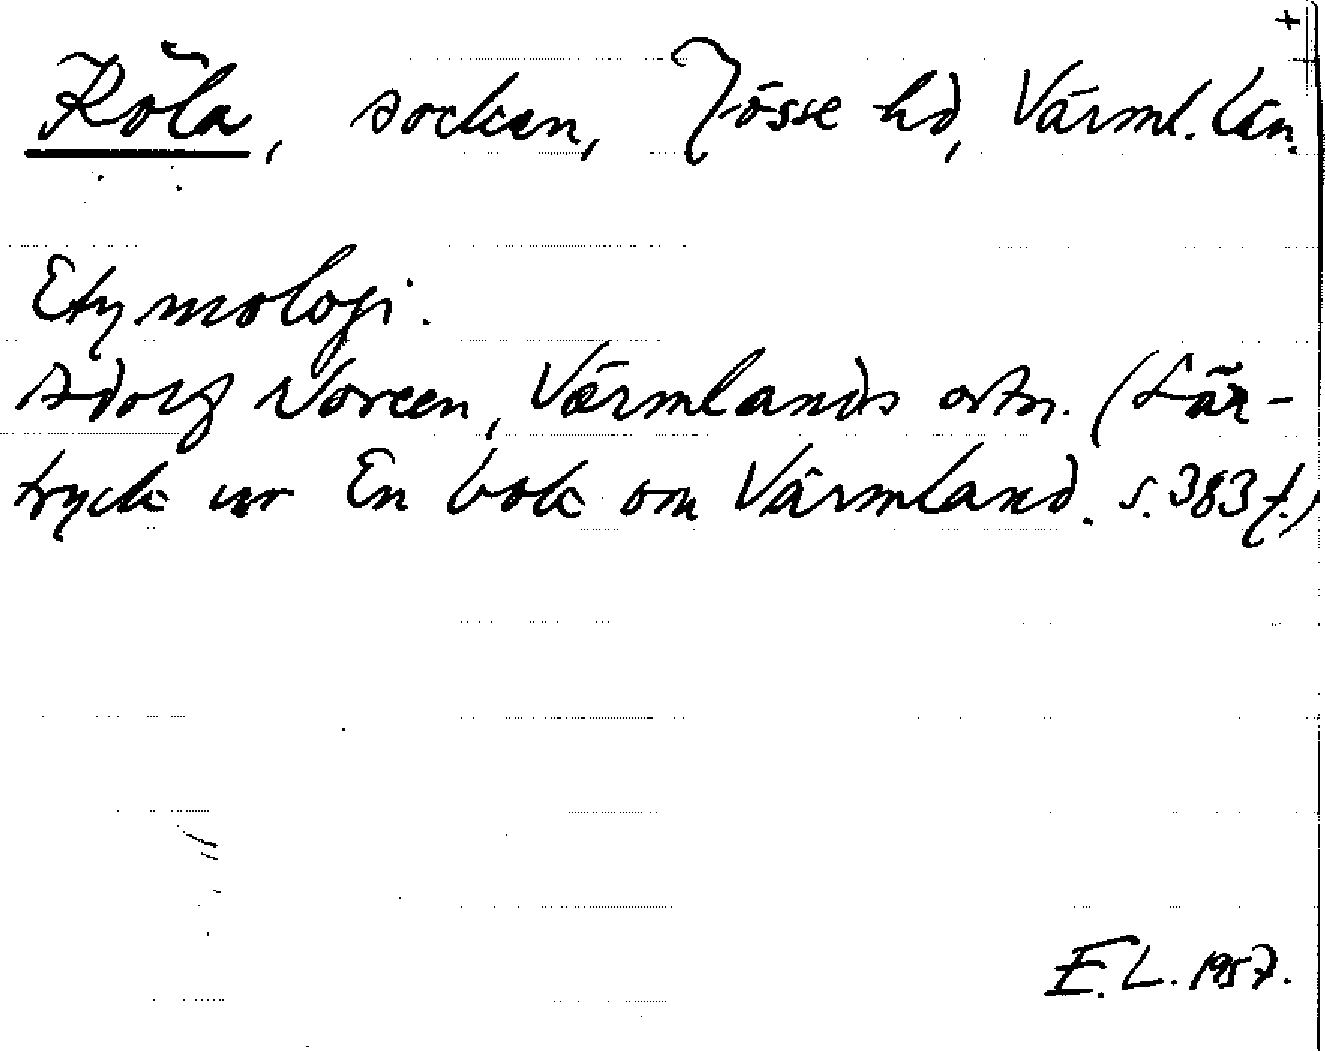 +
Köla, socken, Jösse hd, Värml. län.
Etymologi.
Adolf Noreen, Värmlands ortn. (Sär-
tryck ur En bok om Värmland. s. 383 f.)
E. L. 1957.